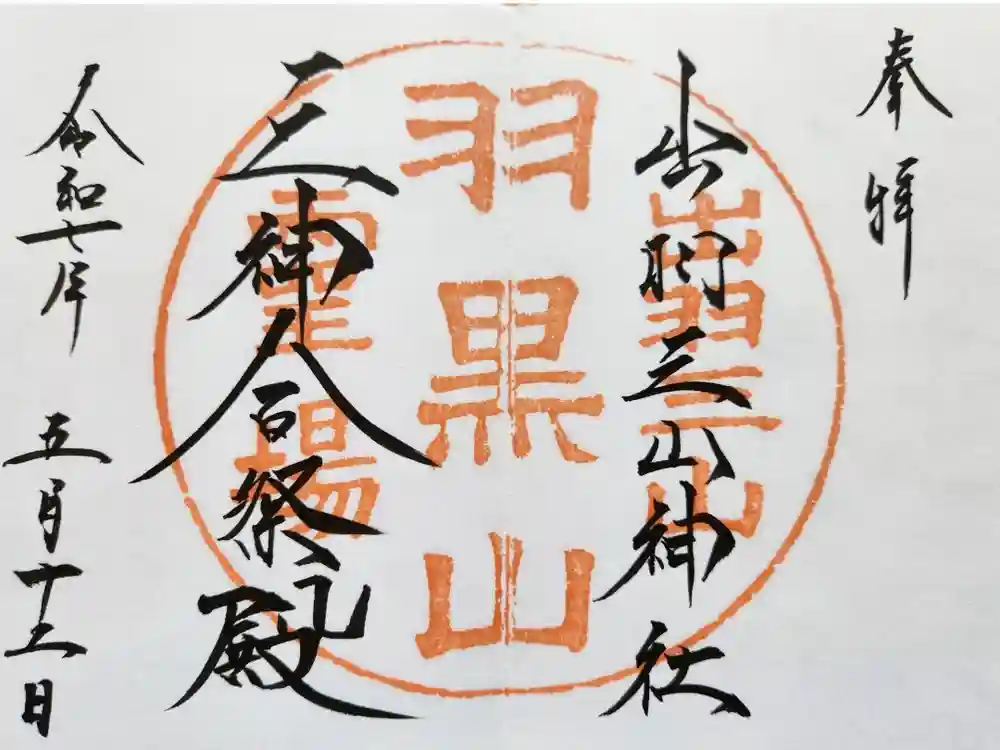 奉拝
出羽三山神社
出羽三山
羽黒山
霊場
三神合祭殿
令和七年 五月十三日